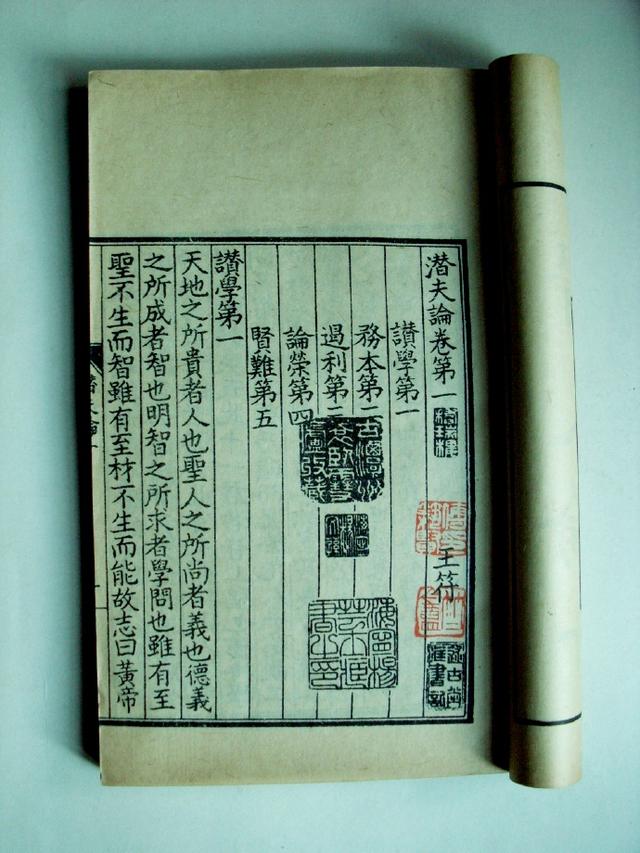 潛夫論卷第一
王符
讃學第一
務本第二
遏利第三
論榮第四
賢難第五
讃學第一
天地之所貴者人也聖人之所尚者義也德義
之所成者智也明智之所求者學問也雖有至
聖不生而智雖有至材不生而能故志曰黃帝